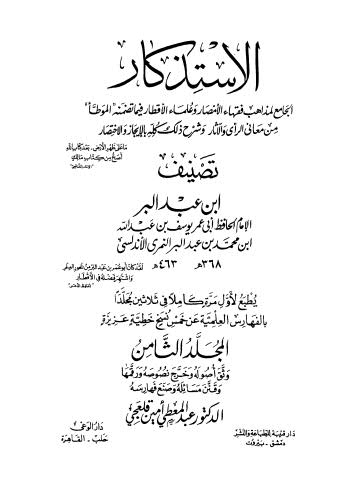 الاستذكار
الجامع لمذاهب فقهاء الأمصار وعلماء الأقطار فيما تضمنه "الموطأ"
من معاني الرأي والآثار وشرح ذلك كله بالإيجاز والاختصار
ما على ظهر الأرض - بعد كتاب الله -
أصح من كتاب مالك
تصنيف
ابن عبد البر
الإمام الحافظ أبي عمر يوسف بن عبد الله
ابن محمد بن عبد البر النمري الأندلسي
٣٦٨هـ ٤٦٣هـ
واشتهر فضله في الأقطار
يُطبع لأول مرة كاملاً في ثلاثين مجلداً
بالفهارس العلمية عن خمس نسخ خطية عزيزة
المجلد الثامن
وثق أصوله وخرج نصوصه ورقمها
وقنن مسائله وصنع فهارسه
الدكتور عبد المعطي أمين قلعجي
دار قتيبة للطباعة والنشر
دمشق - بيروت
دار الوعي
حلب - القاهرة